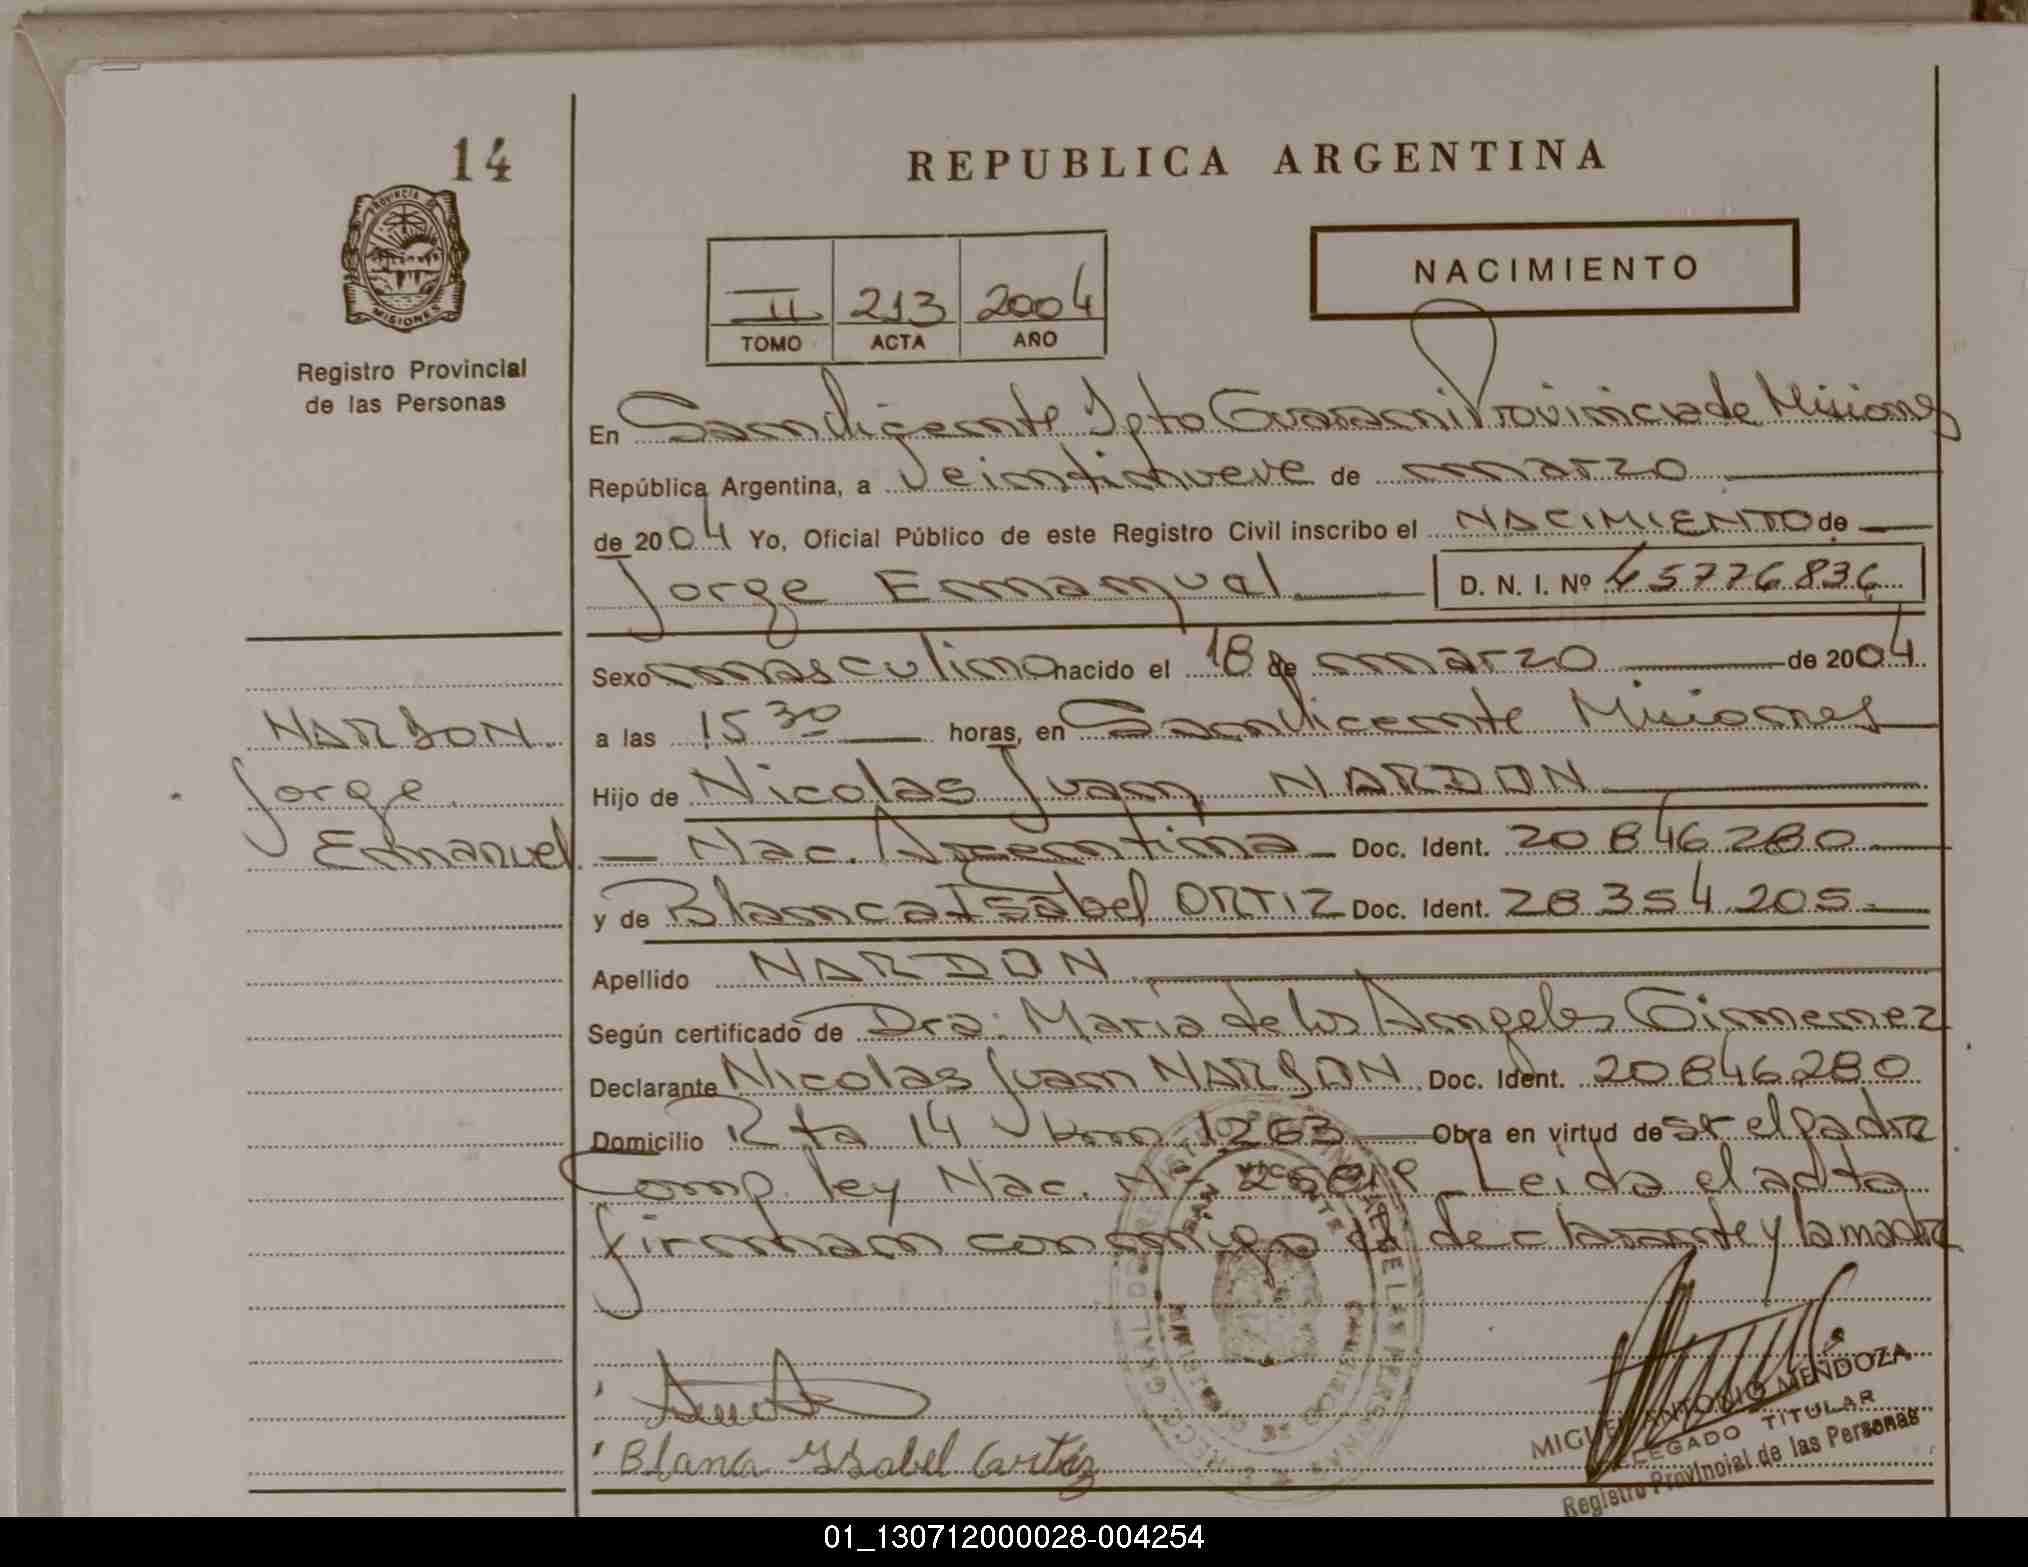 14
REPUBLICA ARGENTINA
PROVINCIA DE
MISIONES
Registro Provincial
de las Personas
NACIMIENTO
II 213 2004
TOMO ACTA AÑO
En San Vicente Dpto Guarani Provincia de Misiones
República Argentina, a Veintinueve de marzo
de 2004 Yo, Oficial Público de este Registro Civil inscribo el NACIMIENTO de
Jorge Enmanual D. N. I. Nº 45776836
Sexo masculino nacido el 18 de marzo de 2004
NARDON a las 15 30 horas, en San Vicente Misiones
Jorge Hijo de Nicolas Juan NARDON
Enmanuel Nac. Argentina Doc. Ident. 20846280
y de Blanca Isabel ORTIZ Doc. Ident. 28354205
Apellido NARDON
Según certificado de Dra. Maria de los Angeles Gimenez
Declarante Nicolas Juan NARDON Doc. Ident. 20846280
Domicilio Rta 14 km 1263 Obra en virtud de ser el padre
Comp. ley Nac. Leida el acta
firman conmigo el declarante y la madre
Blanca Ysabel Ortiz
MIGUEL ANTONIO MENDOZA
DELEGADO TITULAR
Registro Provincial de las Personas
01_130712000028-004254